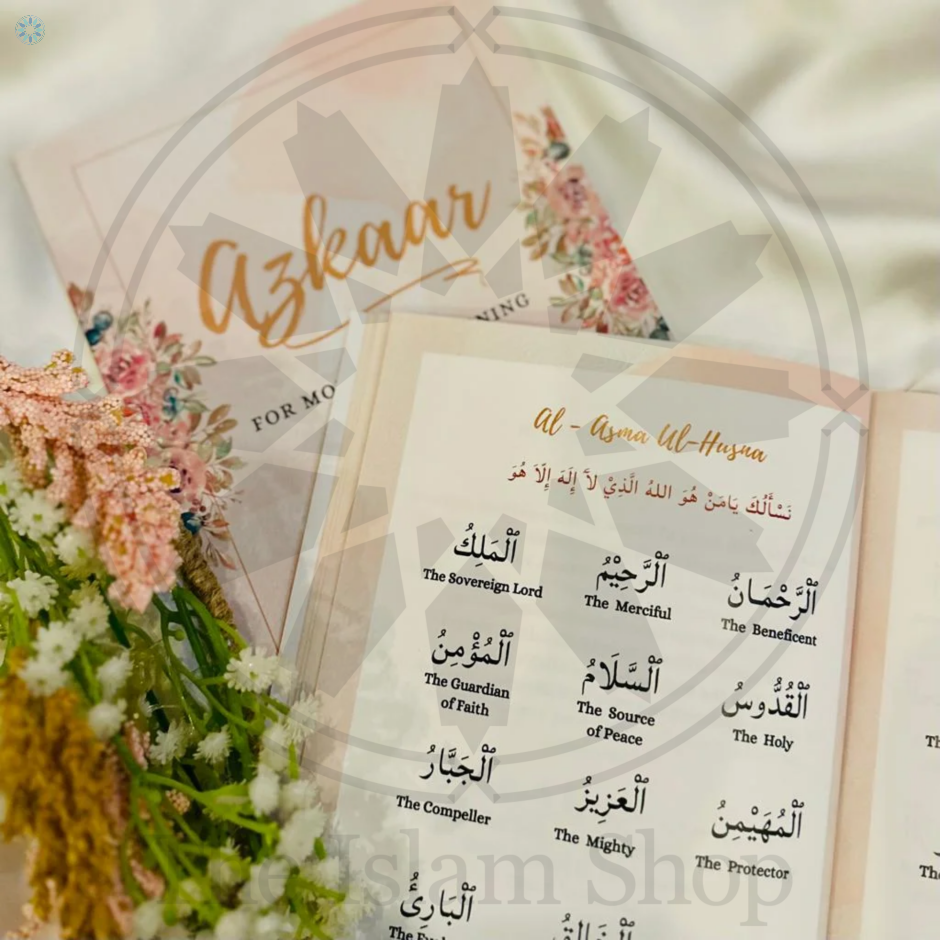 Azkaar
FOR MO
NING
Al - Asma Ul-Husna
نَسْأَلُكَ يَامَنْ هُوَ اللهُ الَّذِيْ لاَ إِلَهَ إِلاَّ هُوَ
اَلْرَّحْمَانُ
The Beneficent
اَلْرَّحِيْمُ
The Merciful
اَلْمَلِكُ
The Sovereign Lord
اَلْقُدُّوسُ
The Holy
اَلْسَّلَامُ
The Source
of Peace
اَلْمُؤْمِنُ
The Guardian
of Faith
اَلْمُهَيْمِنُ
The Protector
اَلْعَزِيزُ
The Mighty
اَلْجَبَّارُ
The Compeller
اَلْبَارِئُ
The Islam Shop